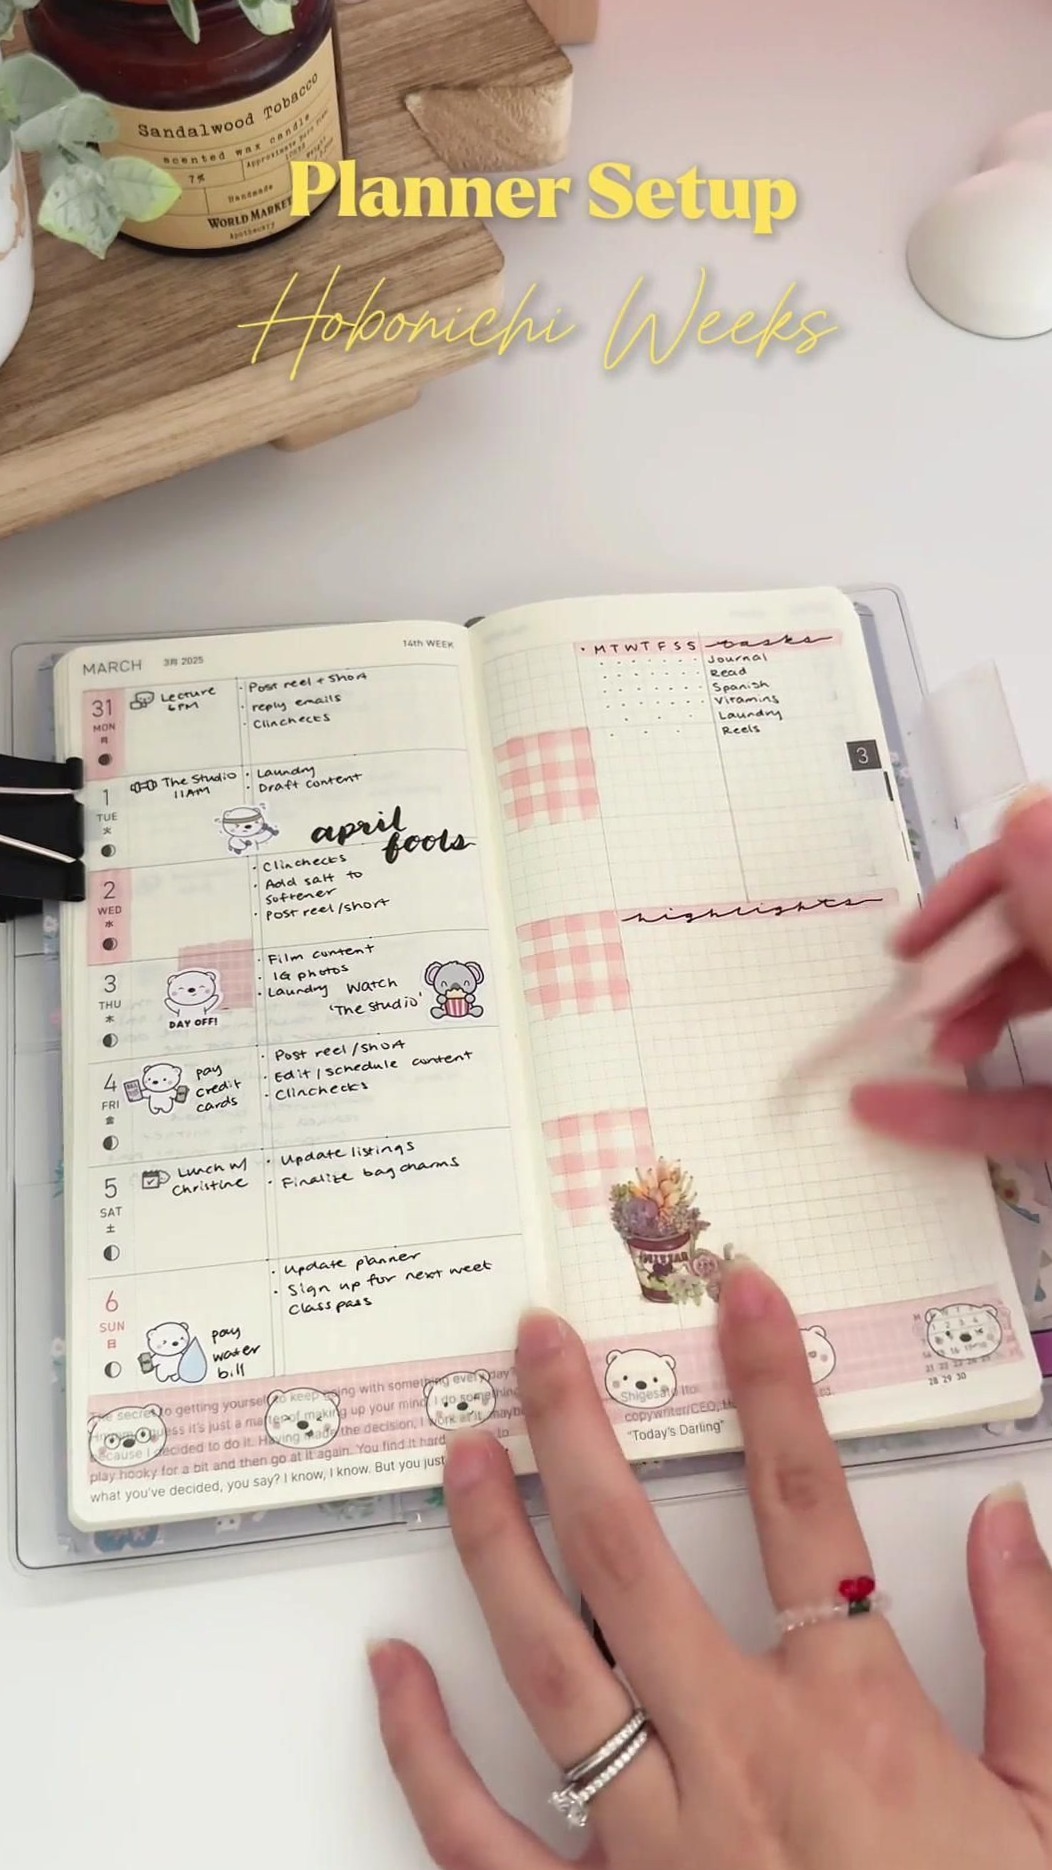 Sandalwood Tobacco
scented wax candle
7%
Approximate Burn Time
Handmade
WORLD MARKET
Apothecary
Planner Setup
Hobonichi Weeks
MARCH 3月 2025
14th WEEK
31
MON
月
Lecture
6PM
· Post reel + short
· reply emails
· Clinchecks
1
TUE
火
The Studio
11AM
· Laundry
· Draft content
april
fools
2
WED
水
· Clinchecks
· Add salt to
softener
· Post reel/short
3
THU
木
DAY OFF!
· Film content
· IG photos
· Laundry
Watch
'The Studio'
4
FRI
金
pay
credit
cards
· Post reel/short
· Edit/schedule content
· Clinchecks
5
SAT
土
Lunch w/
Christine
· Update listings
· Finalize bag charms
6
SUN
日
pay
water
bill
· Update planner
· Sign up for next week
classpass
The secret to getting yourself to keep going with something every day?
guess it's just a matter of making up your mind. I do something
because I decided to do it. Having made the decision, I work at it, maybe
play hooky for a bit and then go at it again. You find it hard to
what you've decided, you say? I know, I know. But you just
· M T W T F S S tasks
Journal
Read
Spanish
Vitamins
Laundry
Reels
3
highlights
Shigesato Itoi
copywriter/CEO,
"Today's Darling"
28 29 30